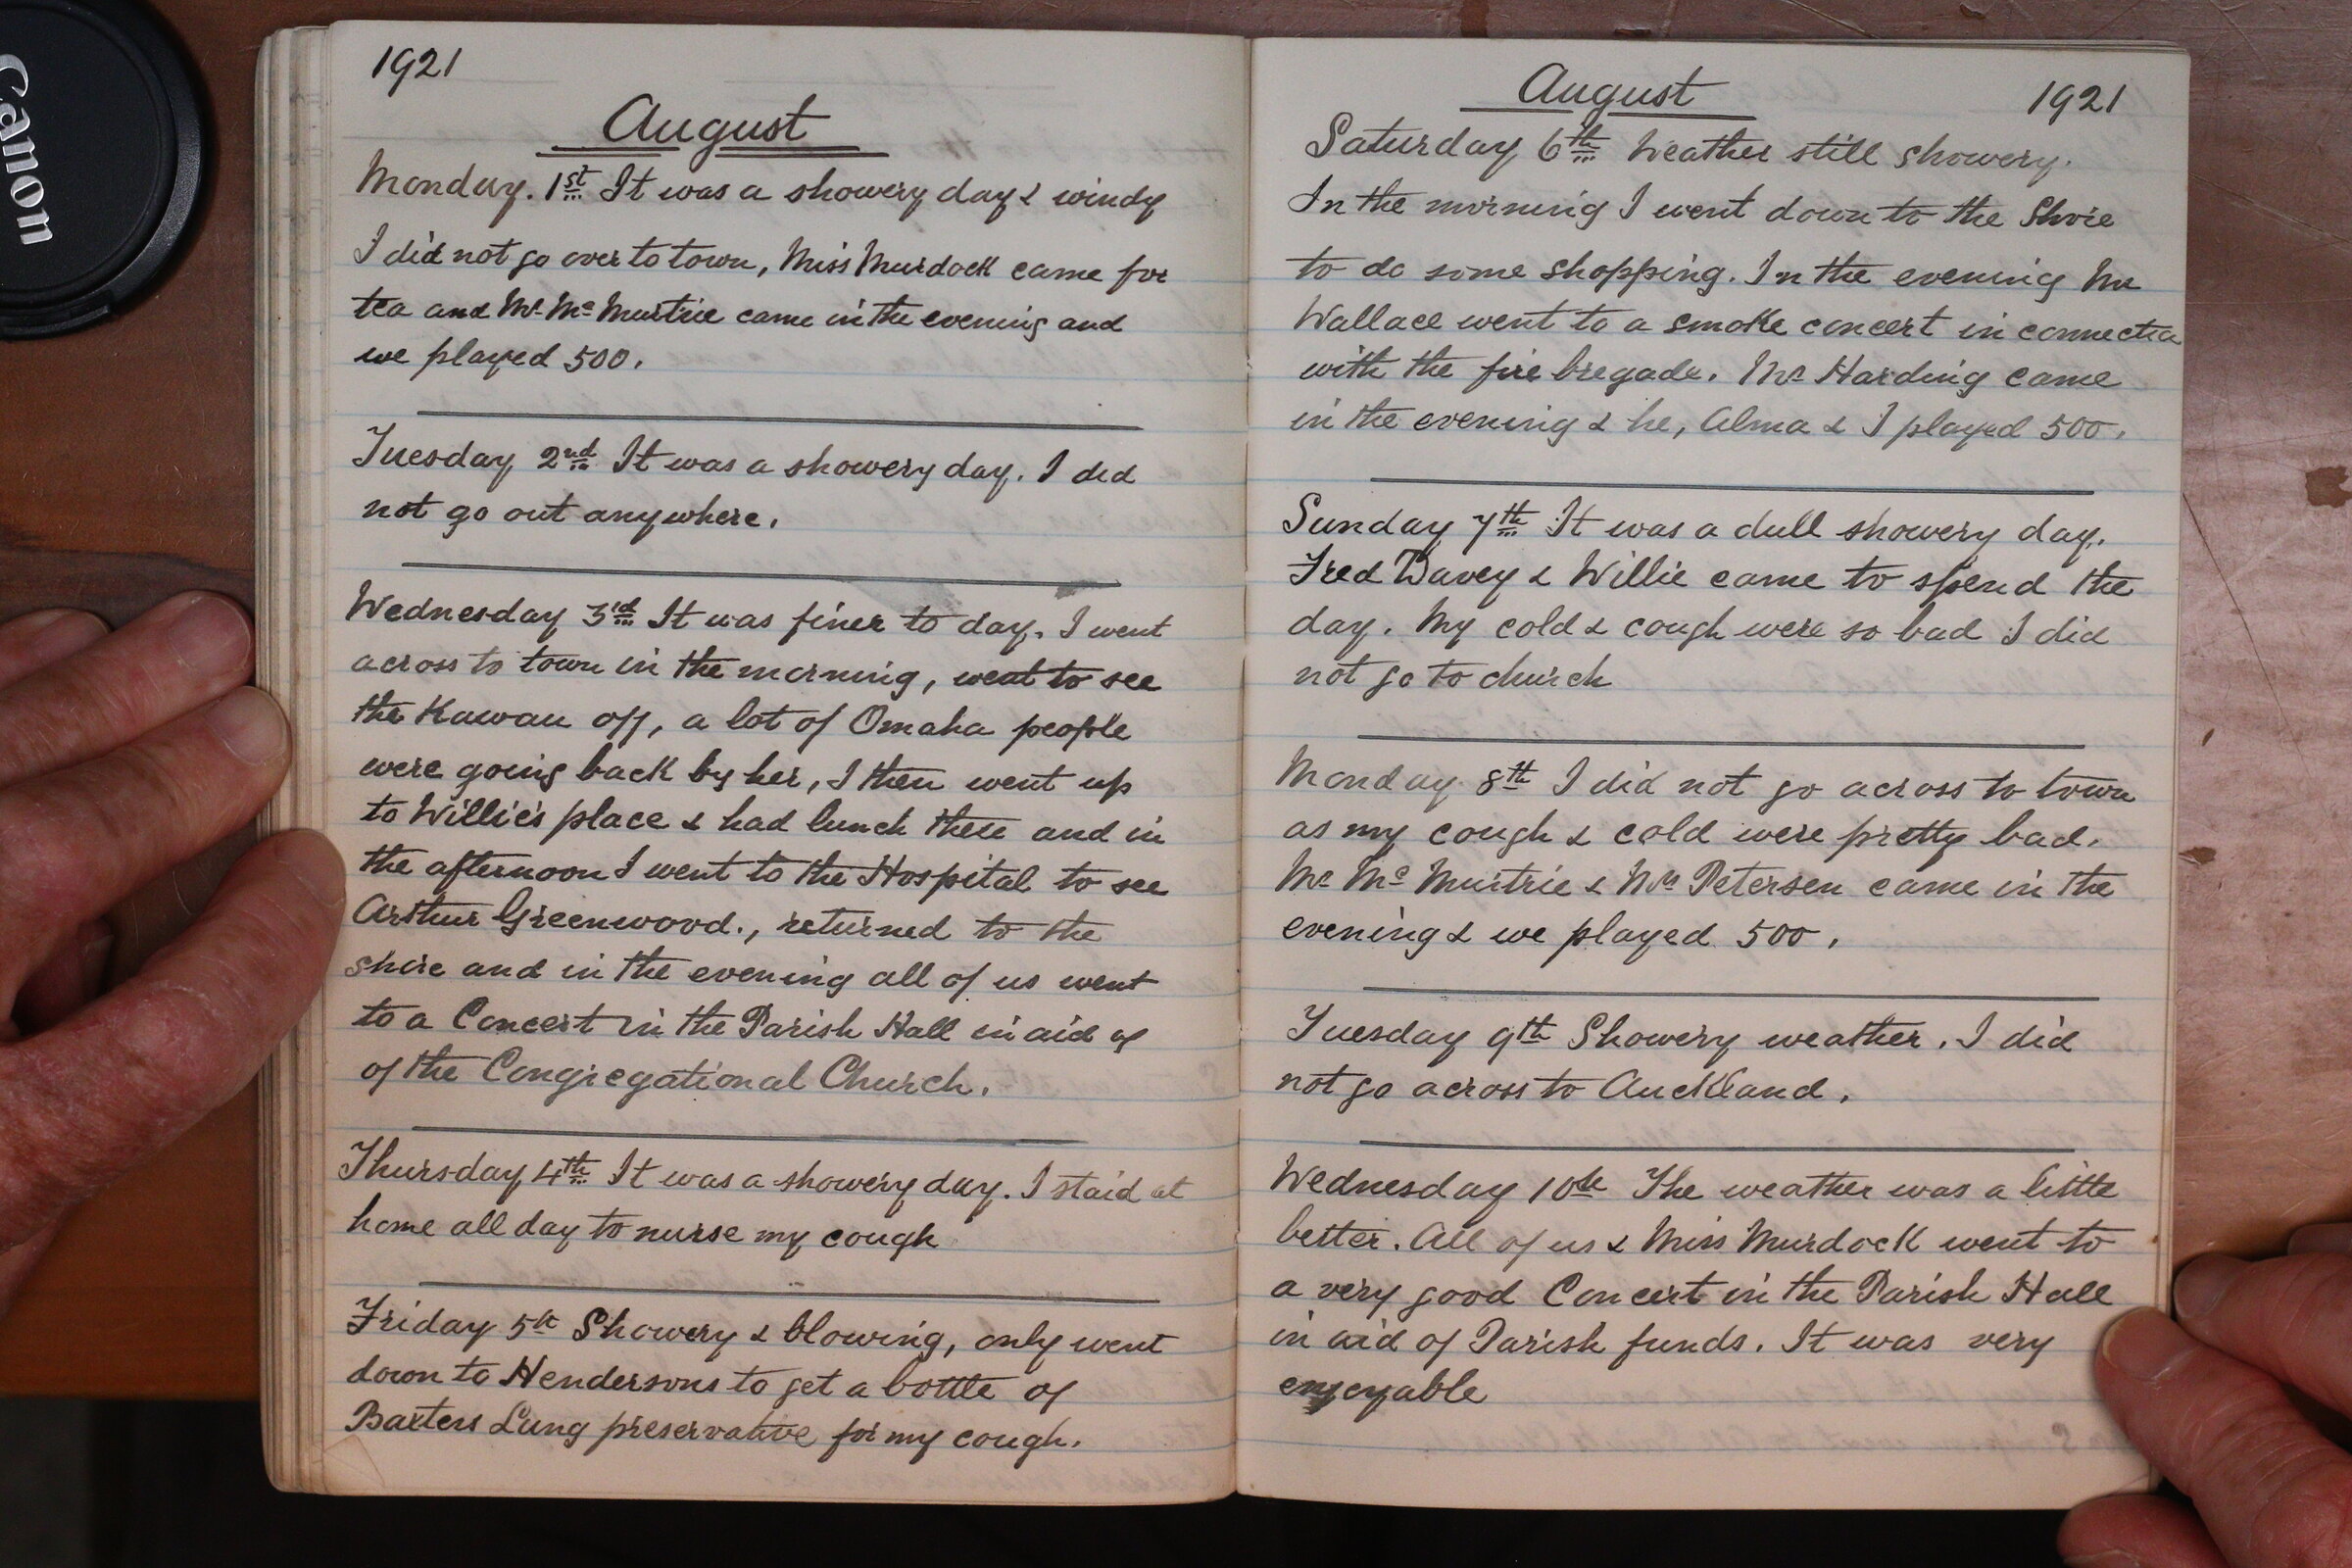 Canon
1921
August
Monday. 1st It was a showery day & windy
I did not go over to town, Miss Murdock came for
tea and Mr. Mc Murtrie came in the evening and
we played 500.
Tuesday 2nd It was a showery day. I did
not go out anywhere.
Wednesday 3rd It was finer to day. I went
across to town in the morning, went to see
the Kawau off, a lot of Omaha people
were going back by her, I then went up
to Willie's place & had lunch there and in
the afternoon I went to the Hospital to see
Arthur Greenwood., returned to the
shore and in the evening all of us went
to a Concert in the Parish Hall in aid of
of the Congregational Church.
Thursday 4th It was a showery day. I staid at
home all day to nurse my cough
Friday 5th Showery & blowing, only went
down to Hendersons to get a bottle of
Baxters Lung preservative for my cough.
August 1921
Saturday 6th Weather still showery.
In the morning I went down to the Shore
to do some shopping. In the evening Mr
Wallace went to a smoke concert in connectio
with the fire bregade. Mr Harding came
in the evening & he, Alma & I played 500.
Sunday 7th It was a dull showery day.
Fred Davey & Willie came to spend the
day. My cold & cough were so bad I did
not go to church
Monday 8th I did not go across to town
as my cough & cold were pretty bad.
Mr Mc Murtrie & Mrs Petersen came in the
evening & we played 500.
Tuesday 9th Showery weather. I did
not go across to Auckland.
Wednesday 10th The weather was a little
better. All of us & Miss Murdock went to
a very good Concert in the Parish Hall
in aid of Parish funds. It was very
enjoyable